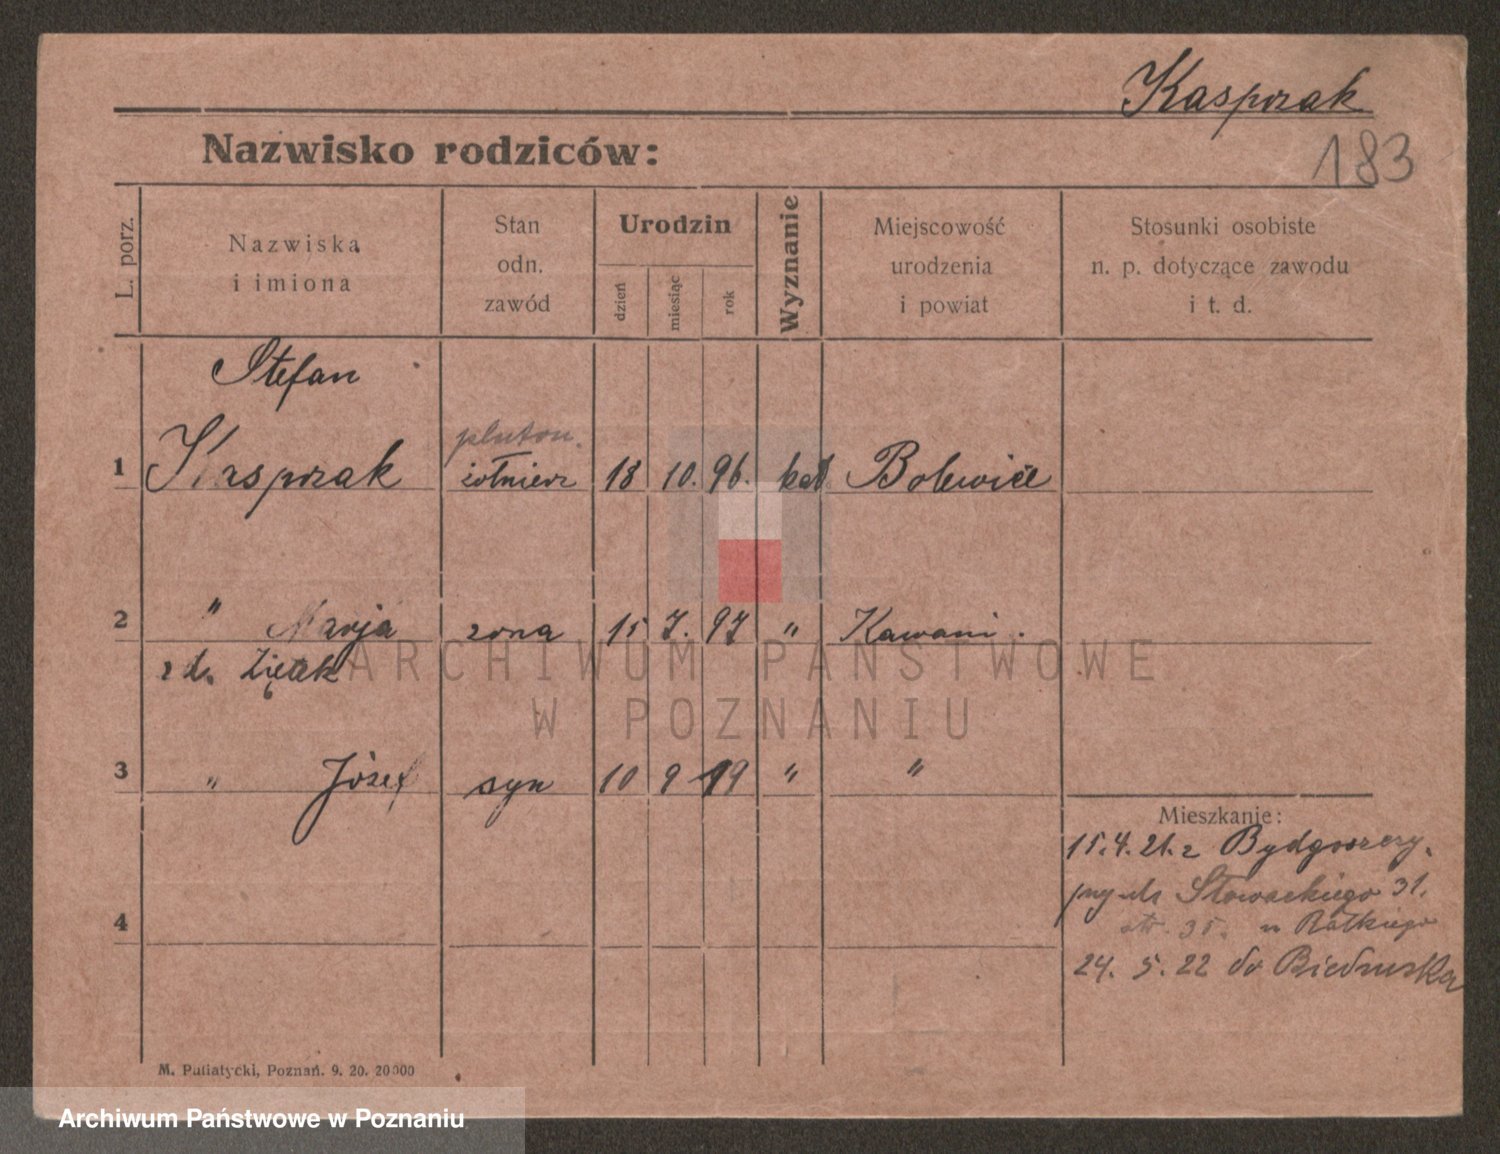 Kasprzak
183
Nazwisko rodziców:
L. porz.
Nazwiska
i imiona
Stan
odn.
zawód
Urodzin
dzień
miesiąc
rok
Wyznanie
Miejscowość
urodzenia
i powiat
Stosunki osobiste
n. p. dotyczące zawodu
i t. d.
Stefan
pluton.
1 Kasprzak żołnierz 18 10. 96. kat Bolewice
2 " Marja żona 15 7. 97 "
z d. Ziętek
ARCHIWUM PAŃSTWOWE
W POZNANIU
3 " Józef syn 10 9 19 " "
Mieszkanie:
15.4.21. z Bydgoszczy.
Słowackiego 31.
35. u Ratkiego
4
24. 5. 22 do Biedruska
M. Putiatycki, Poznań. 9. 20. 20000
Archiwum Państwowe w Poznaniu